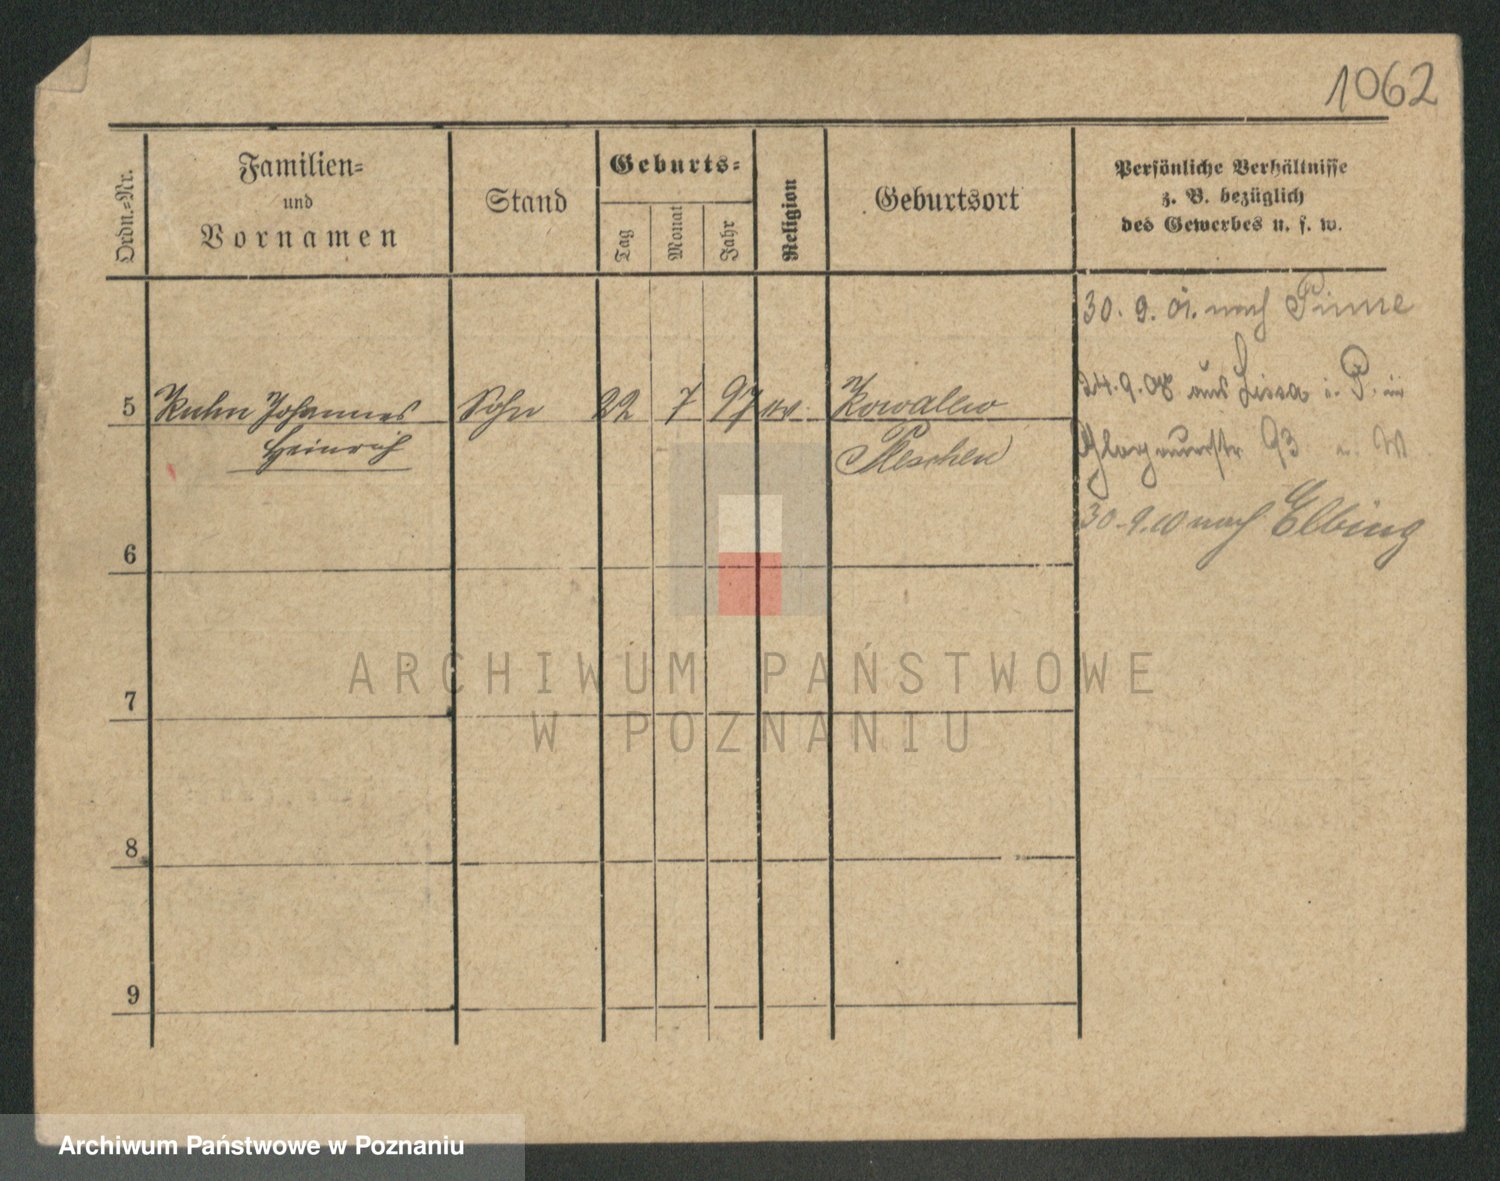 1062
Ordn.-Nr.
Familien-
und
Vornamen
Stand
Geburts-
Tag
Monat
Jahr
Religion
Geburtsort
Persönliche Verhältnisse
z. B. bezüglich
des Gewerbes u. s. w.
30. 9. 01. nach Pinne
5 Kuhn Johannes Sohn 22 7 97 ev. Kowallew
Heinrich Pleschen
24.9.08 aus Lissa i. P. in
Glogauerstr 93
30.9.10 nach Elbing
6
7
8
9
ARCHIWUM PAŃSTWOWE
W POZNANIU
Archiwum Państwowe w Poznaniu